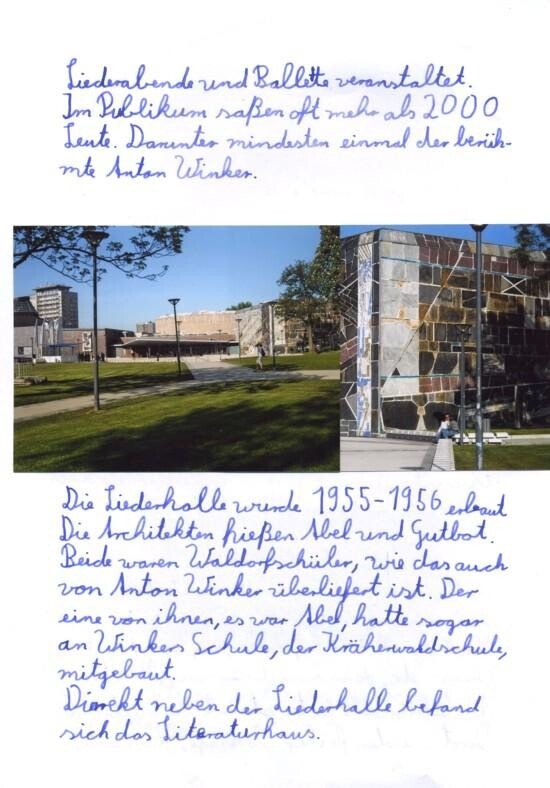 Liederabende und Ballette veranstaltet.
Im Publikum saßen oft mehr als 2000
Leute. Darunter mindesten einmal der berüh-
mte Anton Winker.
Die Liederhalle wurde 1955-1956 erbaut
Die Architekten hießen Abel und Gutbot.
Beide waren Waldorfschüler, wie das auch
von Anton Winker überliefert ist. Der
eine von ihnen, es war Abel, hatte sogar
an Winkers Schule, der Kräherwaldschule,
mitgebaut.
Direkt neben der Liederhalle befand
sich das Literaturhaus.